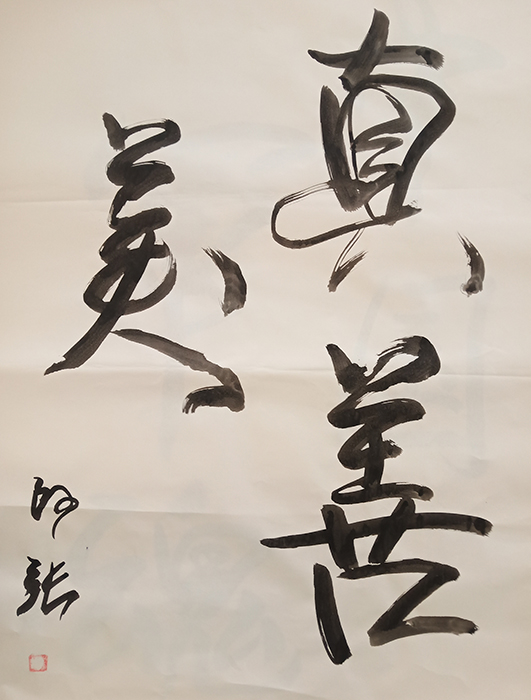 真善
美
張